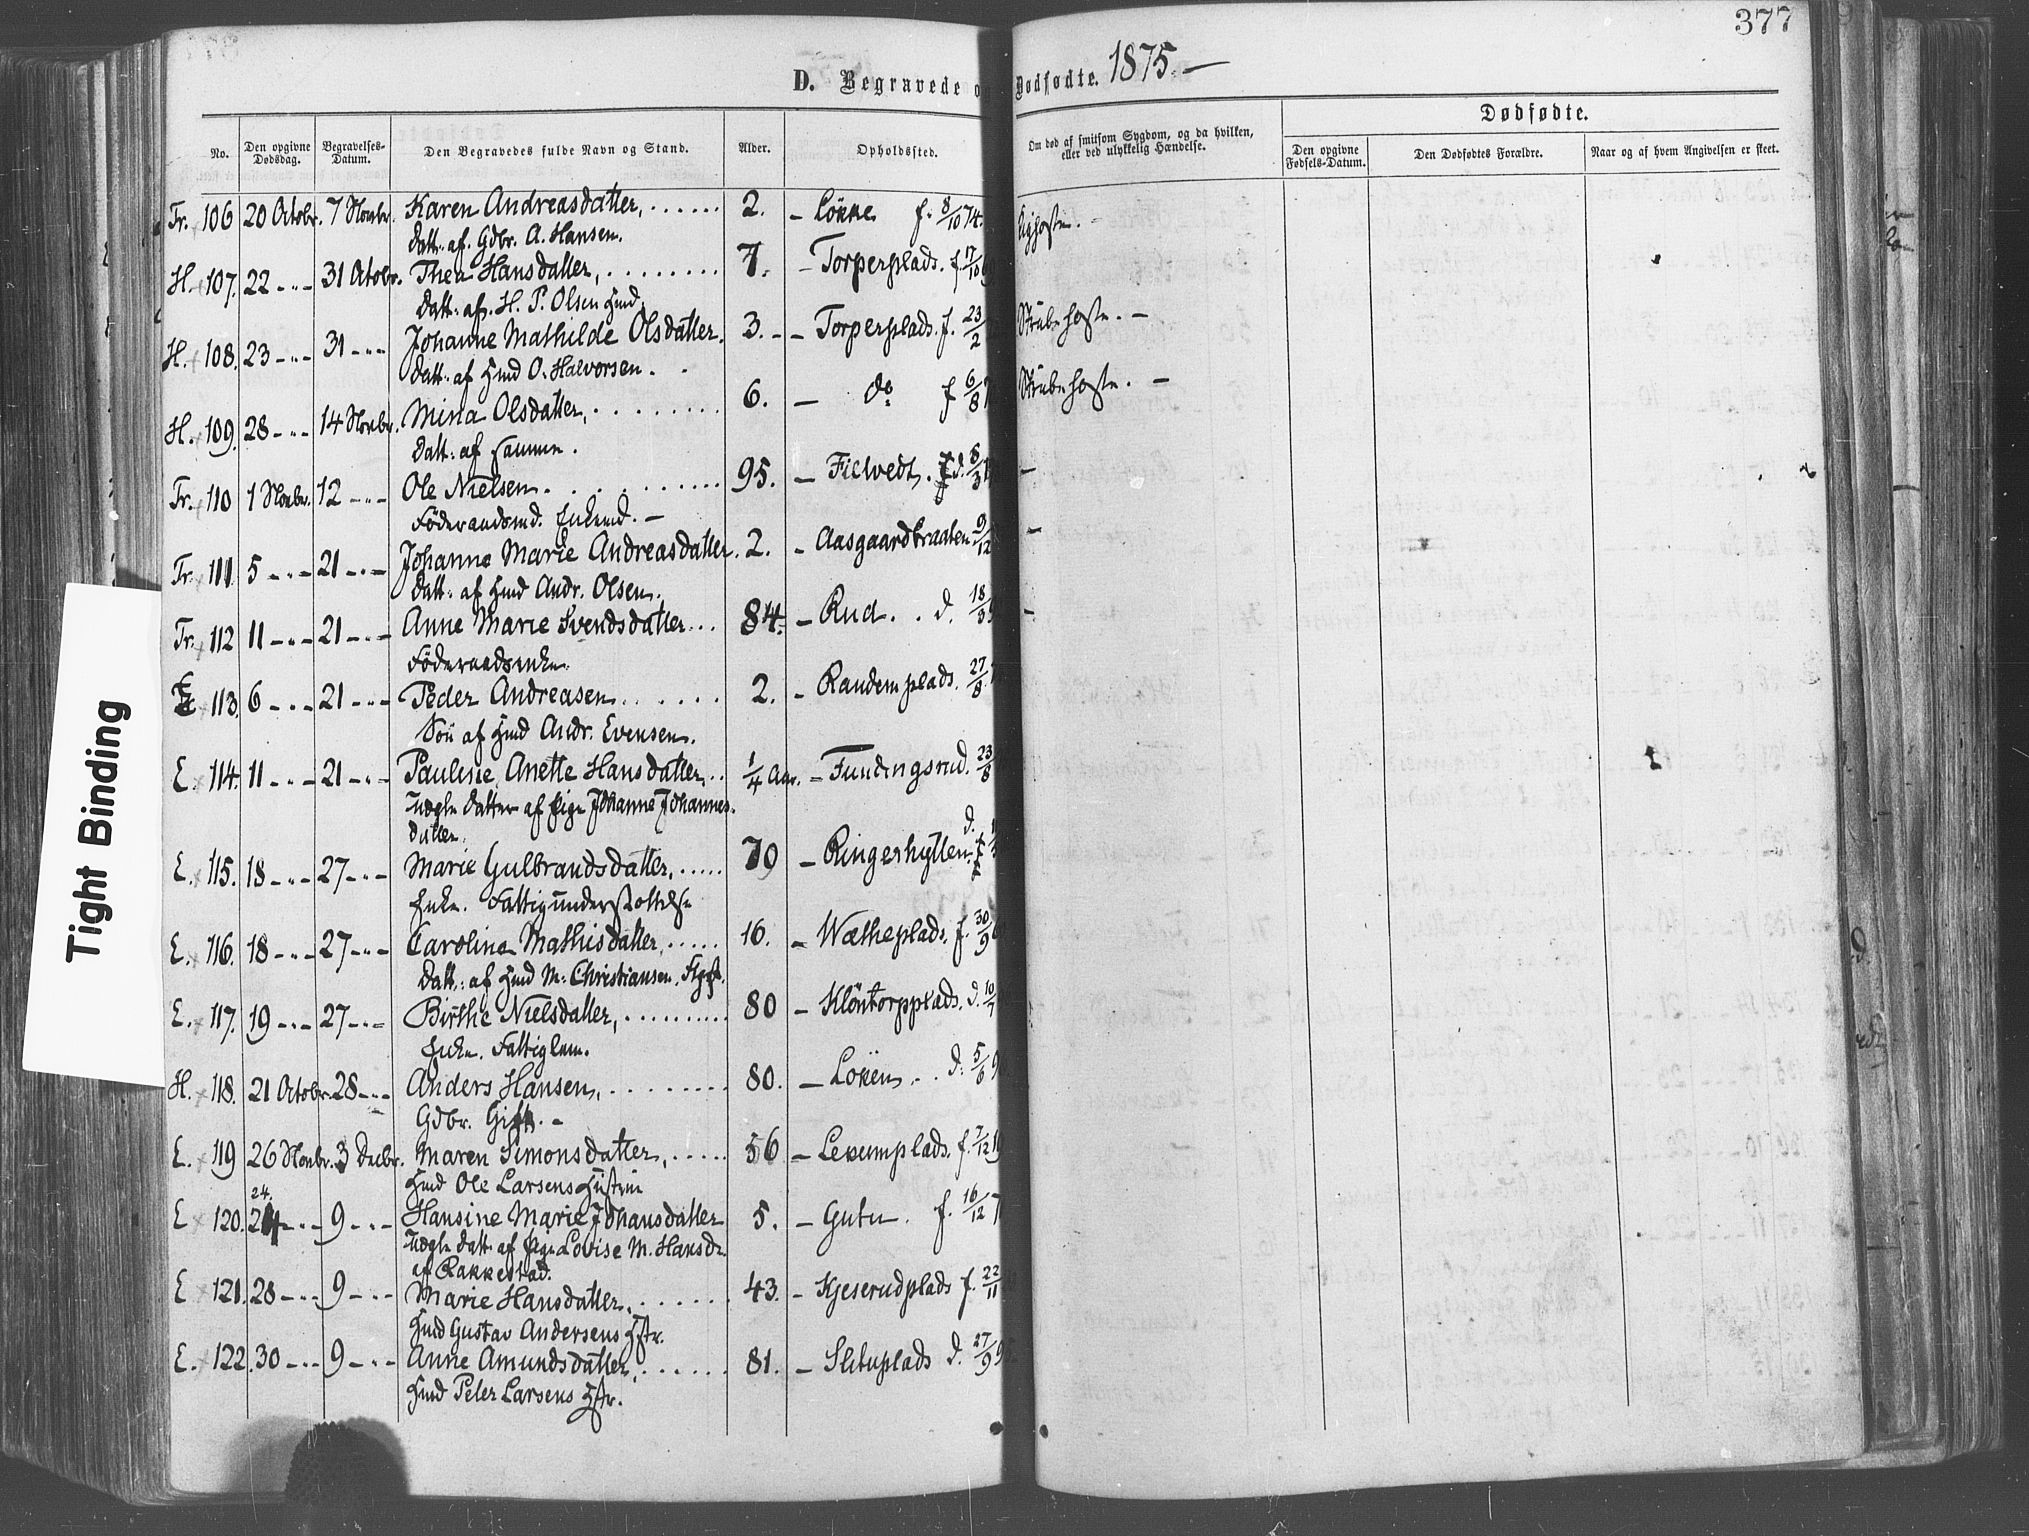 377
D. Begravede og Dødfødte. 1875.—
No. Den opgivne Dødsdag. Begravelses-Datum. Den Begravedes fulde Navn og Stand. Alder. Opholdssted. Om død af smitsom Sygdom, og da hvilken, eller ved ulykkelig Hændelse. Dødfødte.
Den opgivne Fødsels-Datum. Den Dødfødtes Forældre. Naar og af hvem Angivelsen er skeet.
Tr. 106 20 Octobr. 7 Novbr. Karen Andreasdatter, 2. – Løkke f. 8/10 74. Kighoste.
Datt. af Gdbr. A. Hansen.
H. 107. 22 -"- 31 Octobr. Thea Hansdatter, 7. – Torperplads. f. 17/10
Datt. af H. P. Olsen Hmd.
H. 108. 23 -"- 31 -"- Johanne Mathilde Olsdatter. 3. – Torperplads. f. 23/2 Strubehoste. –
Datt. af Hmd O. Halvorsen.
H. 109. 28 -"- 14 Novbr. Mina Olsdatter, 6. – do f 6/8 Strubehoste. –
Datt. af samme.
Tr. 110 1 Novbr. 12 -"- Ole Nielsen. 95. – Fielvedt. d. 8/3 –
Föderaadsmd. Enkemd. –
Tr. 111. 5 -"- 21 -"- Johanne Marie Andreasdatter. 2. – Aasgaardbraaten 9/12 –
Datt. af Hmd Andr. Olsen.
Tr. 112 11 -"- 21 -"- Anne Marie Svendsdatter 84. – Rud. d. 18/9 –
Föderaadsenke.
E 113. 6 -"- 21 -"- Peder Andreasen 2. – Randemplads. 27/8
Sön af Hmd Andr. Evensen.
E. 114. 11 -"- 21 -"- Pauline Anette Hansdatter. 1/4 Aar. – Fundingsrud. 23/8
Uægte Datter af Pige Johanne Johannes-
datter.
E. 115. 18 -"- 27 -"- Marie Gulbrandsdatter, 79 – Ringerhytten. d.
Enke. Fattigunderstøttelse
E. 116. 18 -"- 27 -"- Caroline Mathisdatter, 16. – Wætheplads. f. 30/9
Datt. af Hmd M. Christiansen.
E. 117. 19 -"- 27 -"- Birthe Nielsdatter, 80 – Klöntorpplads. d. 10/7
Enke. Fattiglem.
H. 118. 21 Octobr. 28 -"- Anders Hansen, 80. – Löken d. 5/6
Gdbr. Gift. –
E. 119 26 Novbr. 3 Decbr. Maren Simonsdatter, 56 – Lekumplads. f. 7/12
Hmd Ole Larsens Hustru
24.
E 120. 24 -"- 9 -"- Hansine Marie Johansdatter 5. – Guten. f. 16/12
Uægte Datt. af Pige Lovise M. Hansdr.
af Rakkestad.
E 121. 28 -"- 9 -"- Marie Hansdatter, 43. – Kjeserudplads f. 22/11
Hmd Gustav Andersens Hstr.
E. 122. 30 -"- 9 -"- Anne Amundsdatter, 81. – Slituplads d. 27/9
Hmd Peter Larsens Hstr.
Tight Binding